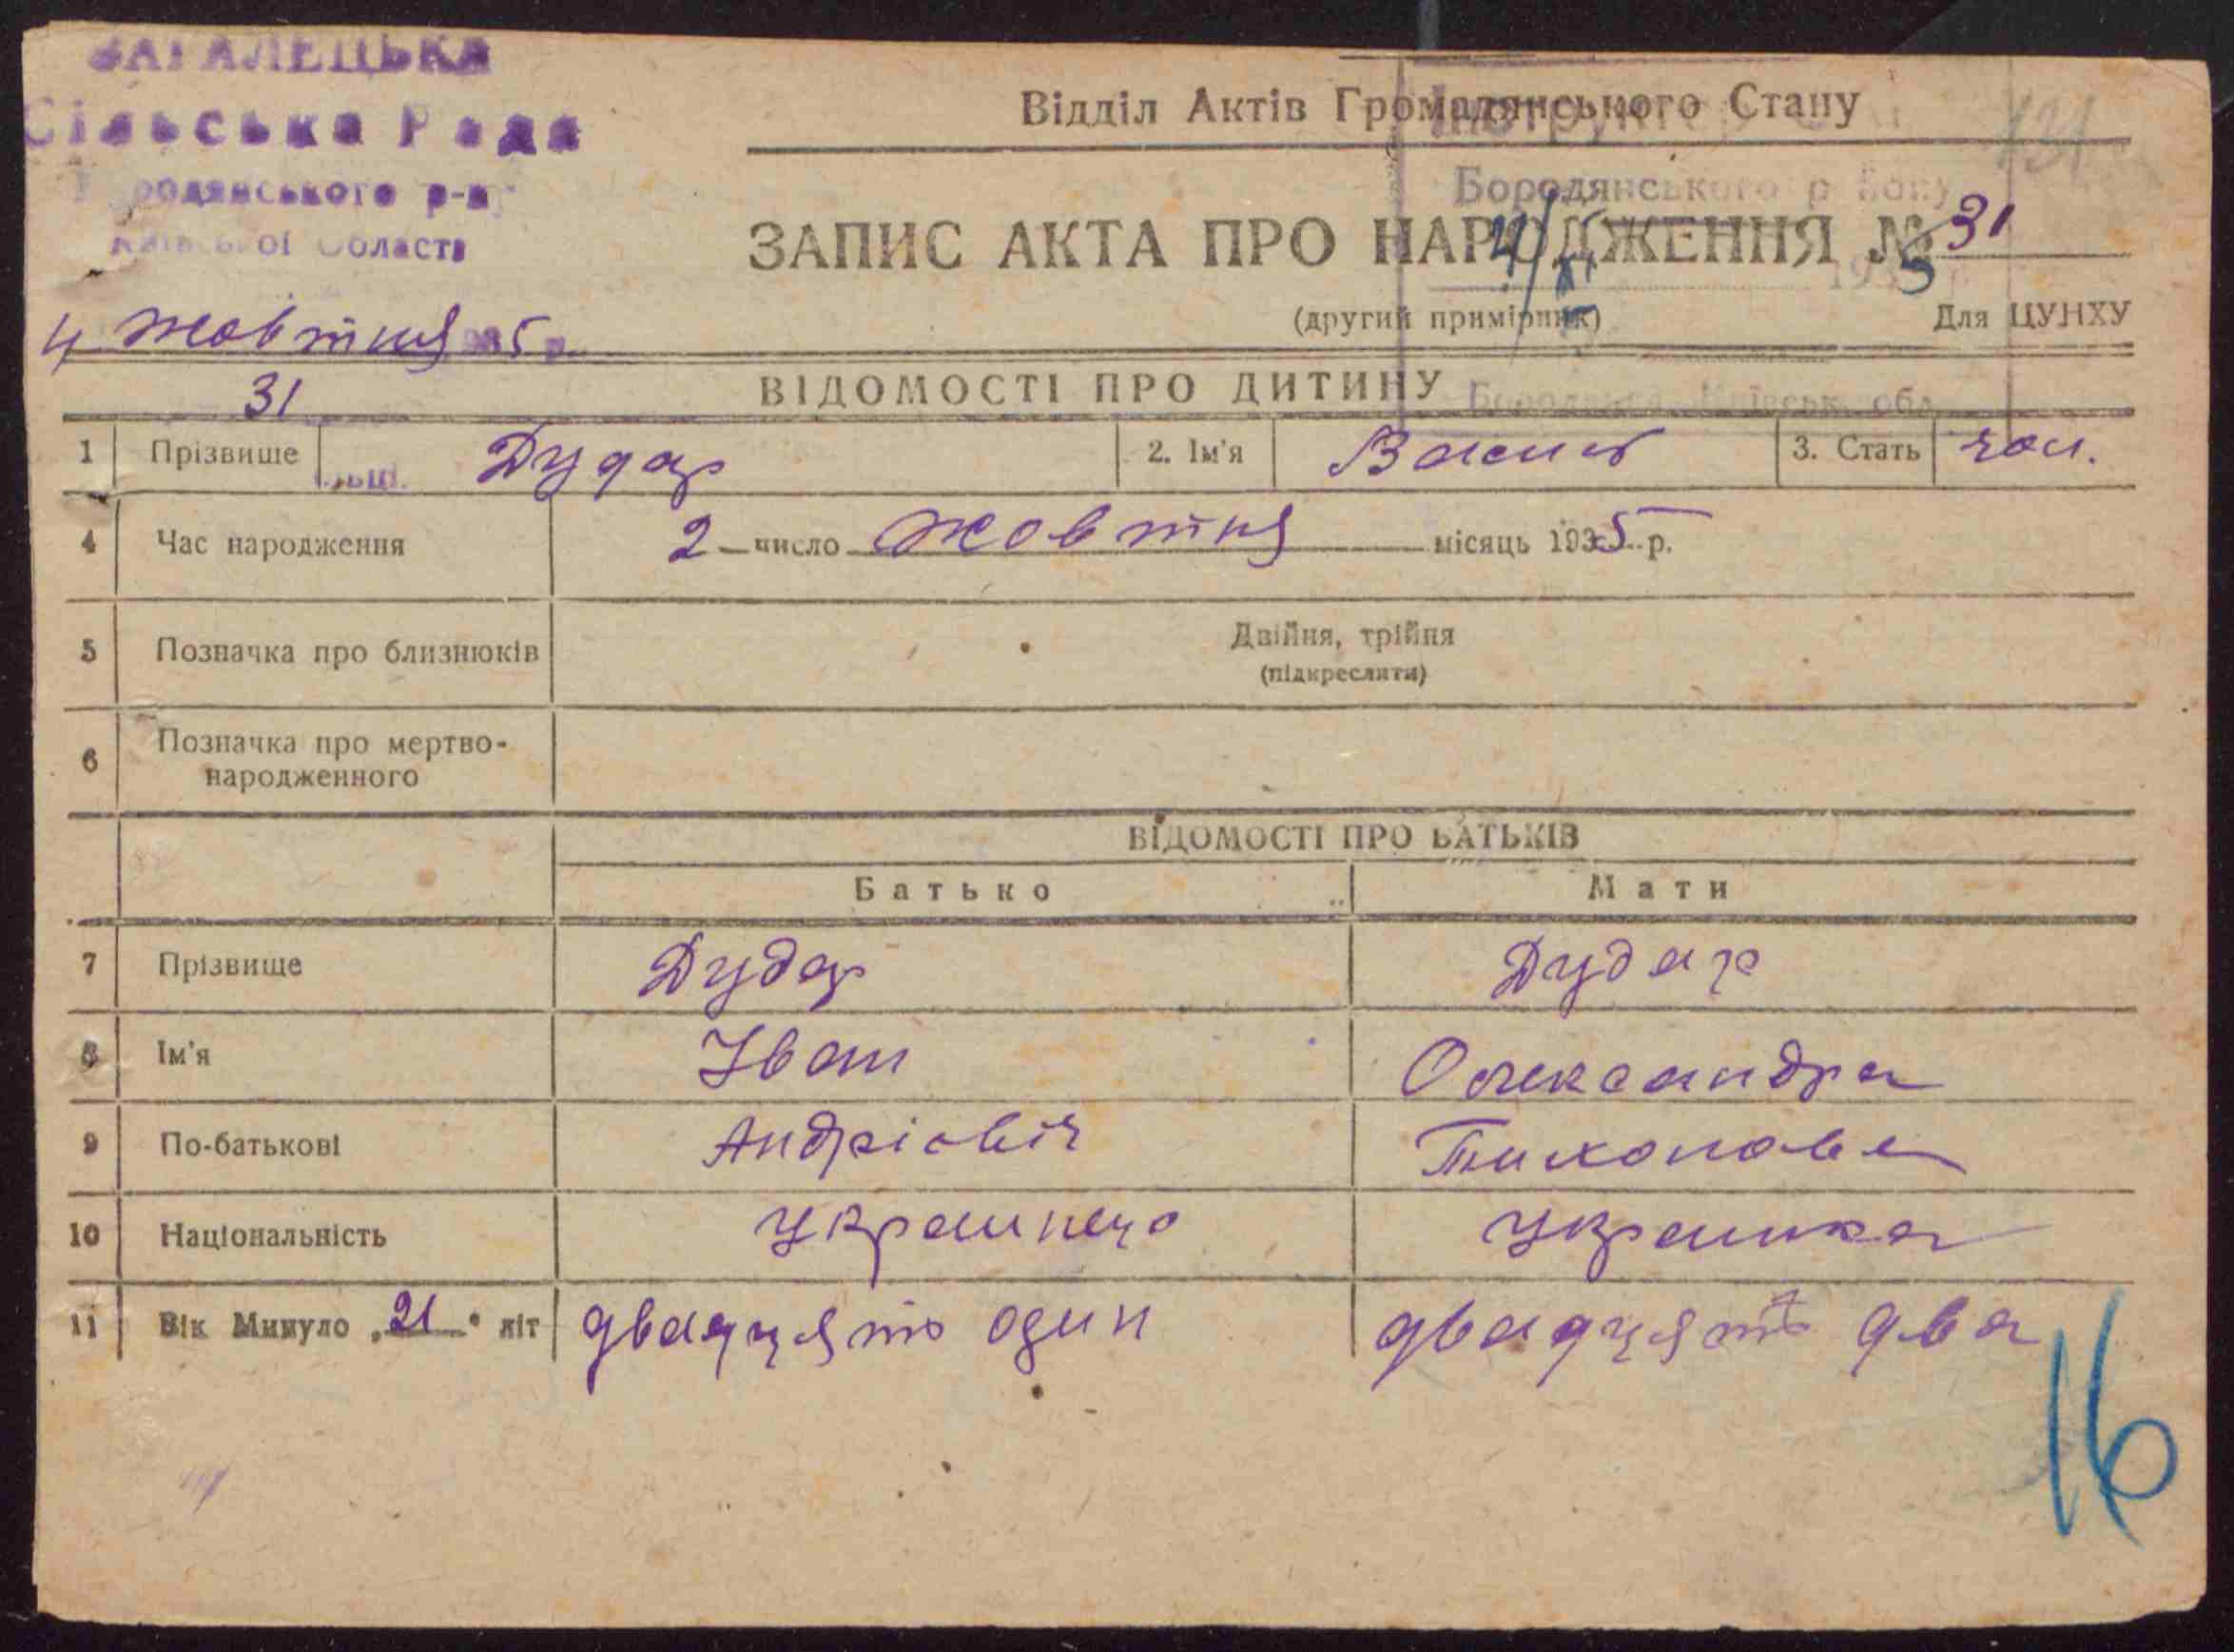 ЗАГАЛЕЦЬКА
Сільська Рада
Бородянського р-ну
Київської Області
4 жовтня 1935 р.
31
Відділ Актів Громадянського Стану
131
Бородянського району
ЗАПИС АКТА ПРО НАРОДЖЕННЯ № 31
4/XI 1935
(другий примірник)
Для ЦУНХУ
ВІДОМОСТІ ПРО ДИТИНУ
Бородянка Київськ. обл.
1 Прізвище Дудар 2. Ім'я Василь 3. Стать чол.
4 Час народження 2 число жовтня місяць 1935 р.
5 Позначка про близнюків Двійня, трійня
(підкреслити)
6 Позначка про мертво-
народженного
ВІДОМОСТІ ПРО БАТЬКІВ
Батько Мати
7 Прізвище Дудар Дудар
8 Ім'я Іван Олександра
9 По-батькові Андрієвіч Тихонова
10 Національність Українець Українка
11 Вік Минуло „21" літ двадцять один двадцять два
16